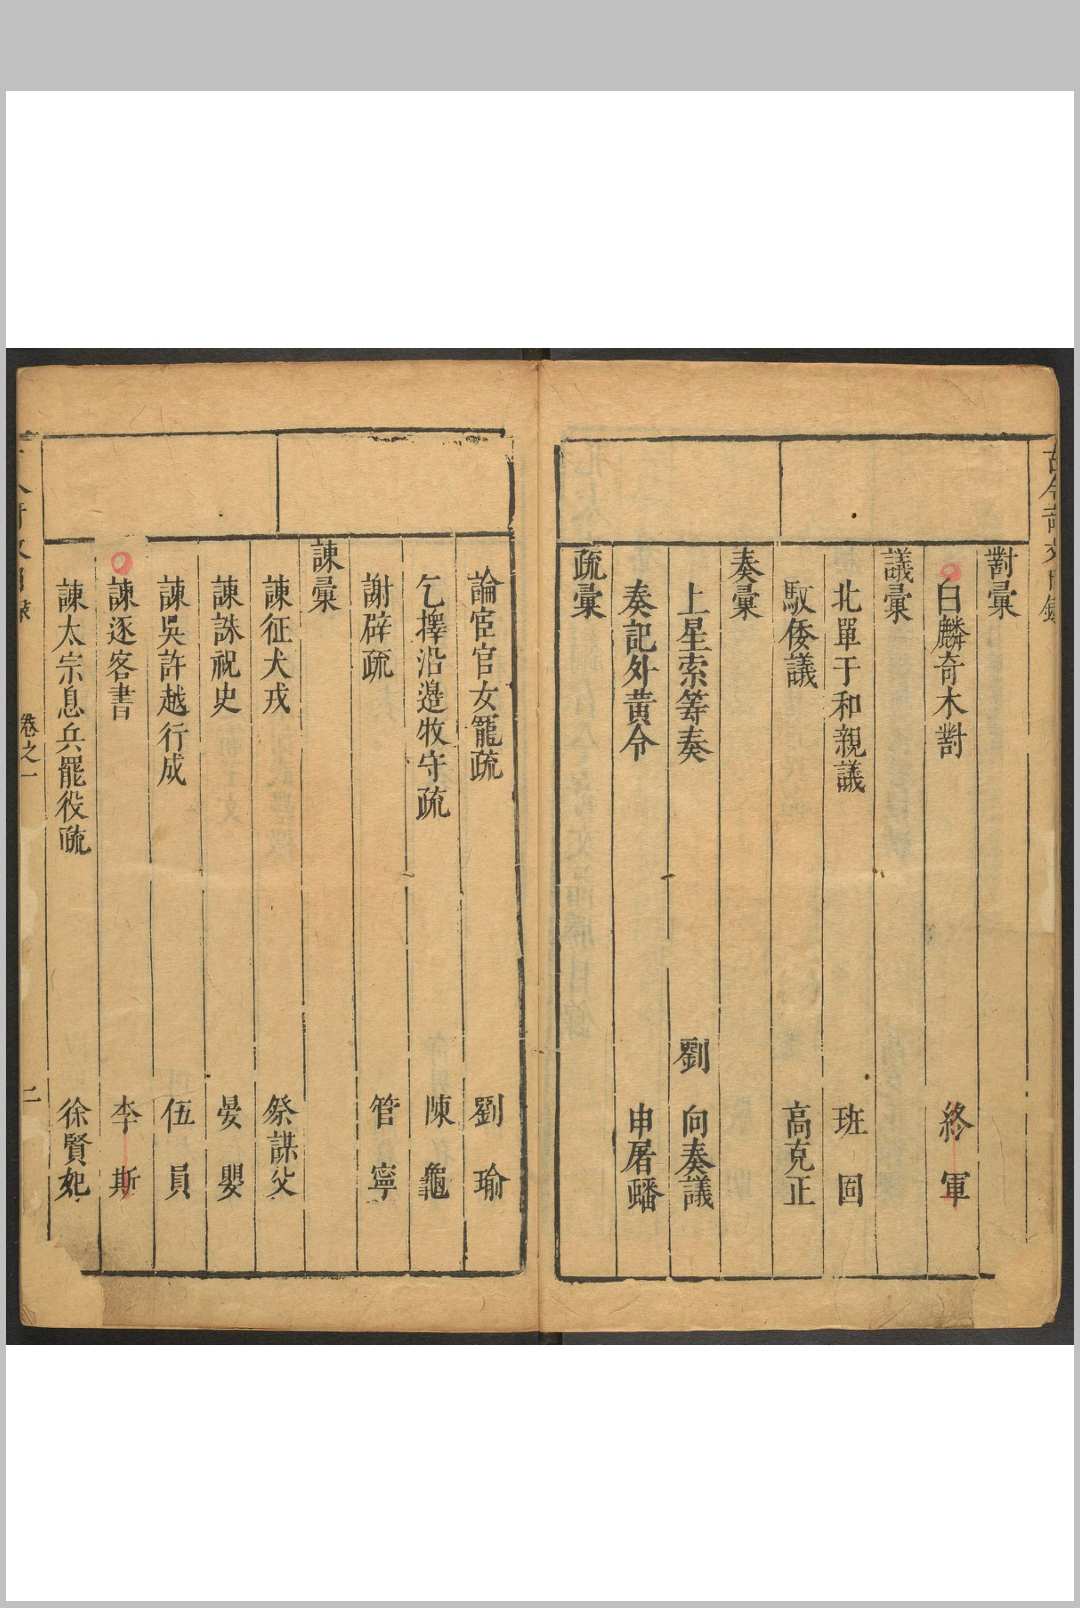 對彙
白麟奇木對 終軍
議彙
北單于和親議 班固
馭倭議 高克正
奏彙
上星索等奏 劉向奏議
奏記外黄令 申屠蟠
疏彙
論宦官女寵疏 劉瑜
乞擇沿邊牧守疏 陳龜
謝辟疏 管寧
諫彙
諫征犬戎 祭謀父
諫誅祝史 晏嬰
諫吳許越行成 伍員
諫逐客書 李斯
諫太宗息兵罷役疏 徐賢妃
卷之一 二